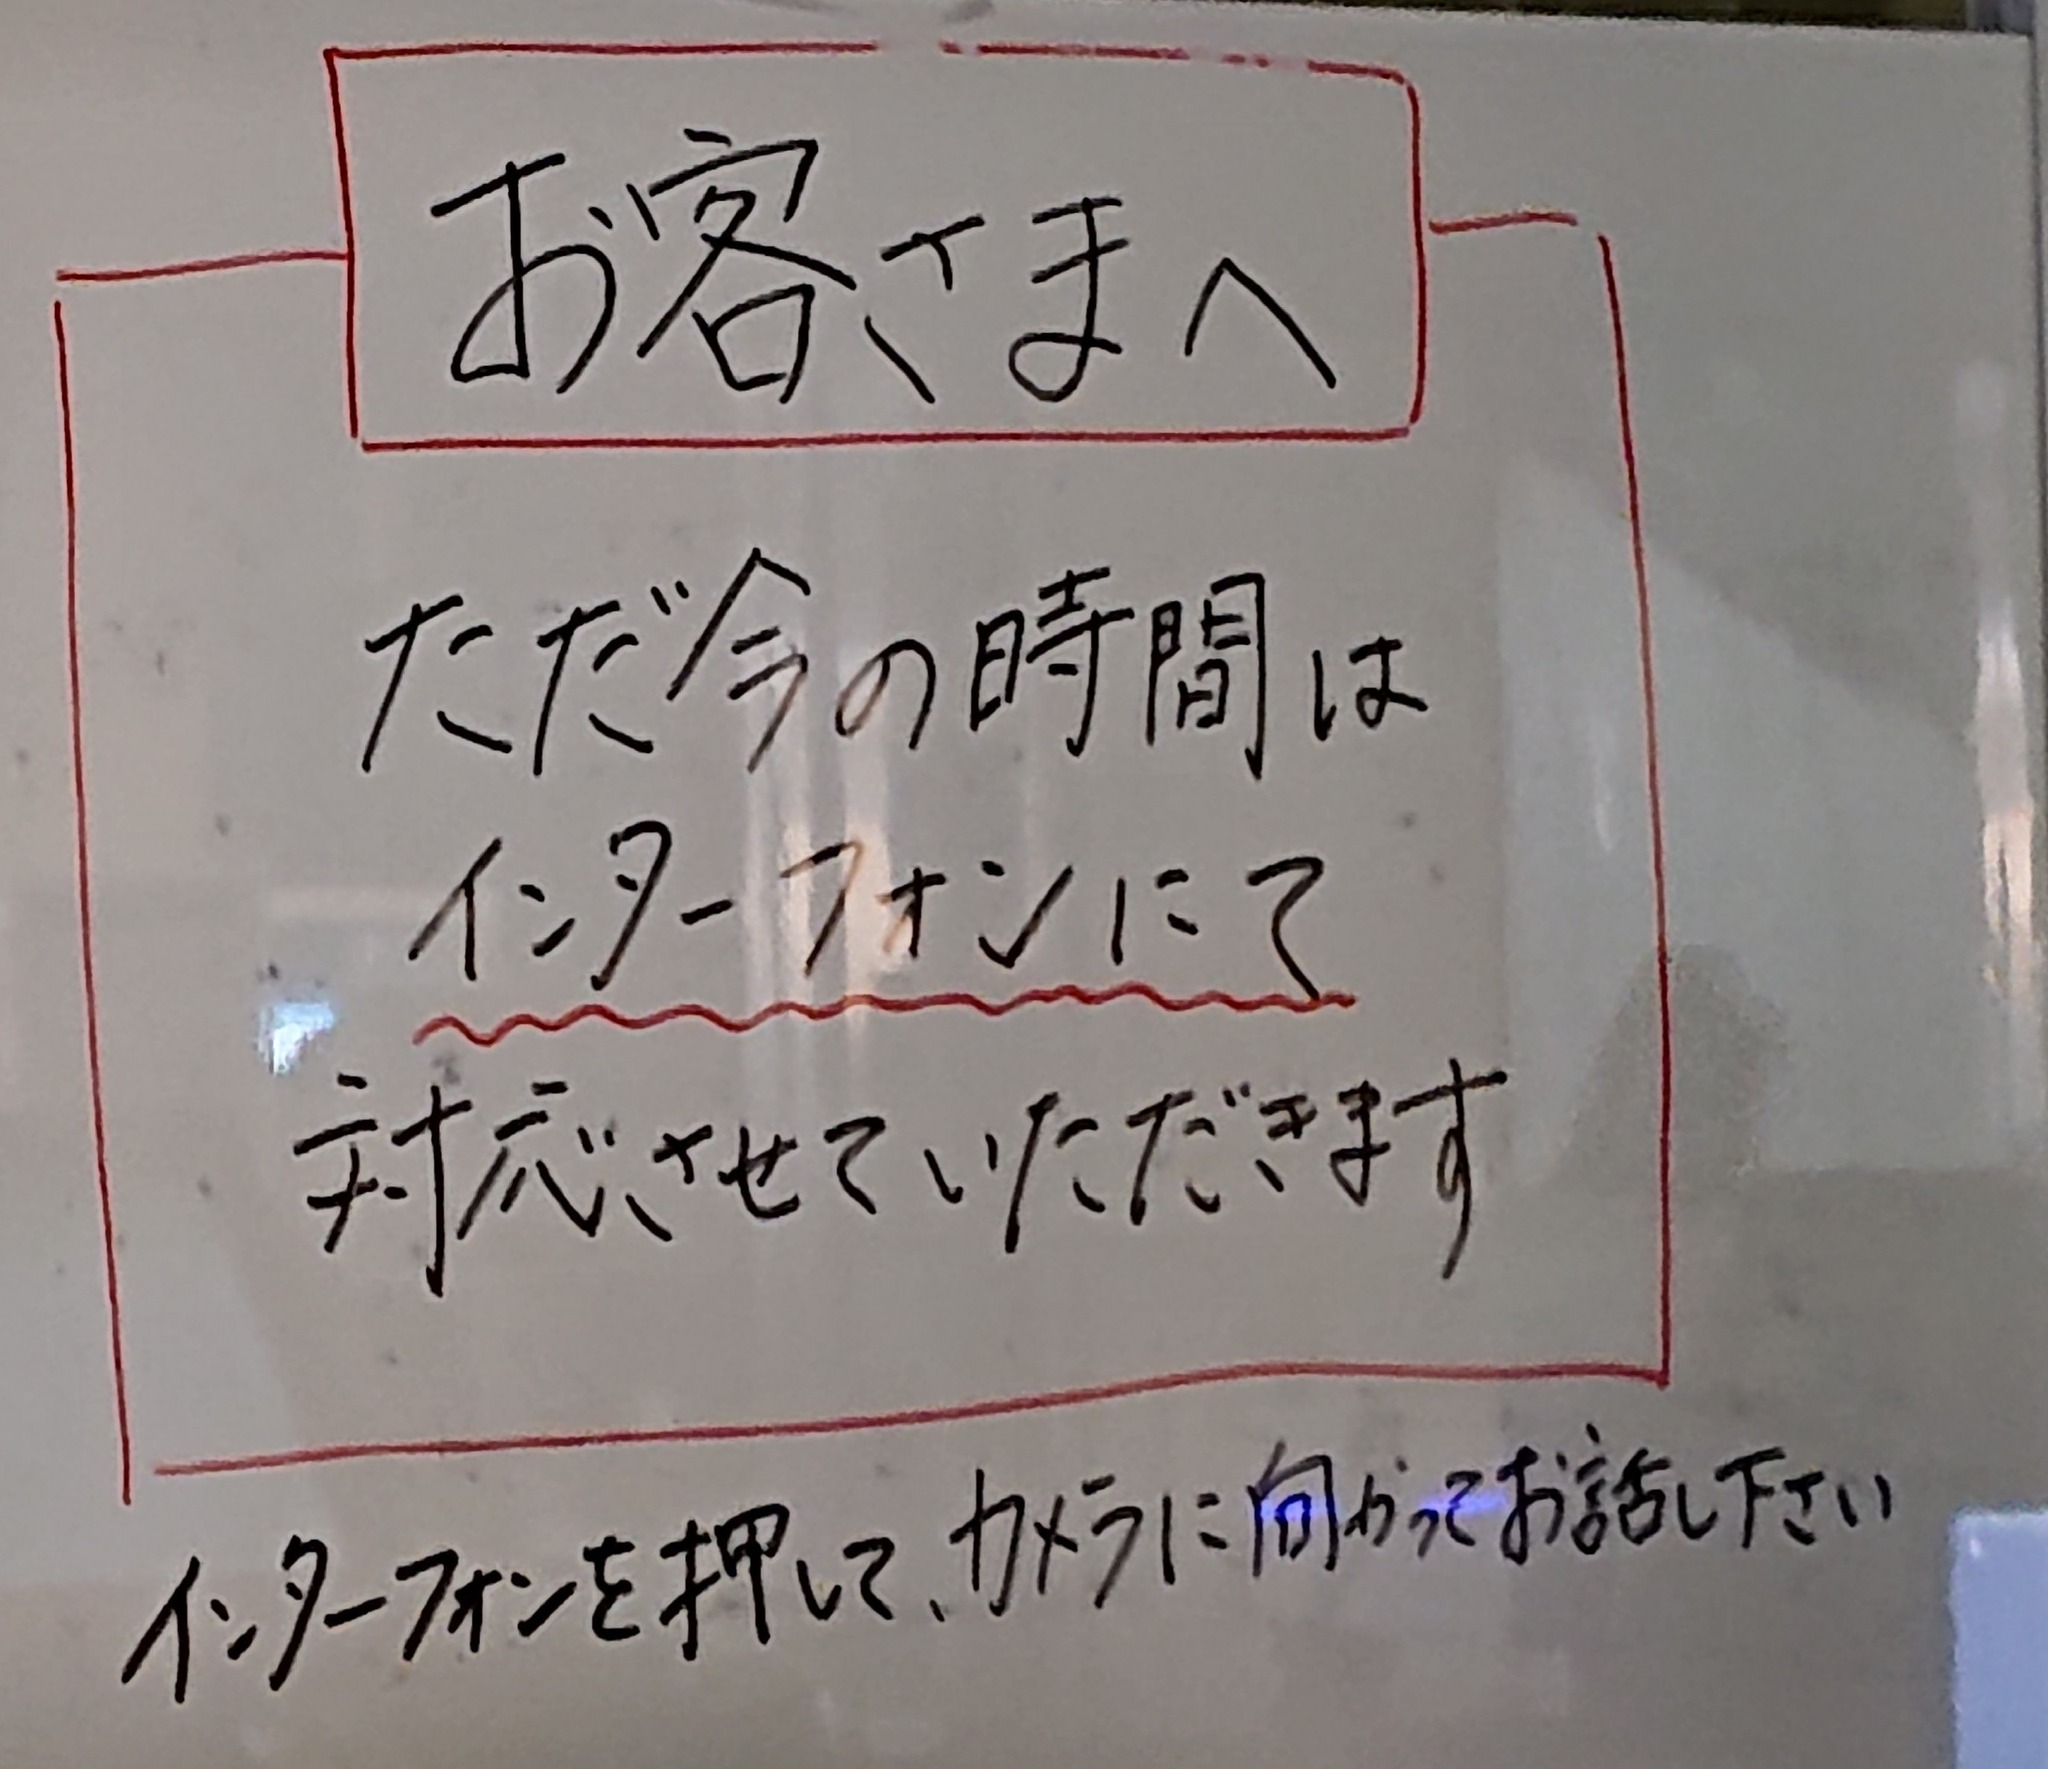 お客さまへ
ただ今の時間は
インターフォンにて
対応させていただきます
インターフォンを押して、カメラに向かってお話し下さい